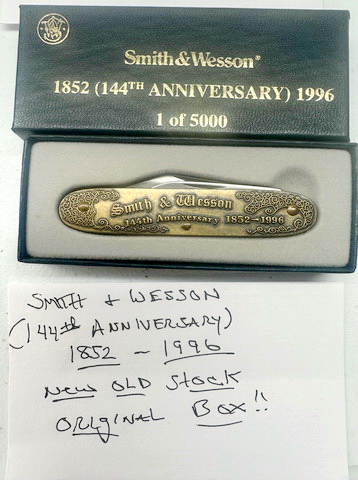 Smith & Wesson®
1852 (144TH ANNIVERSARY) 1996
1 of 5000
Smith & Wesson
144th Anniversary 1852-1996
SMITH & WESSON
(144th ANNIVERSARY)
1852 - 1996
NEW OLD STOCK
ORIgINAL BOX!!